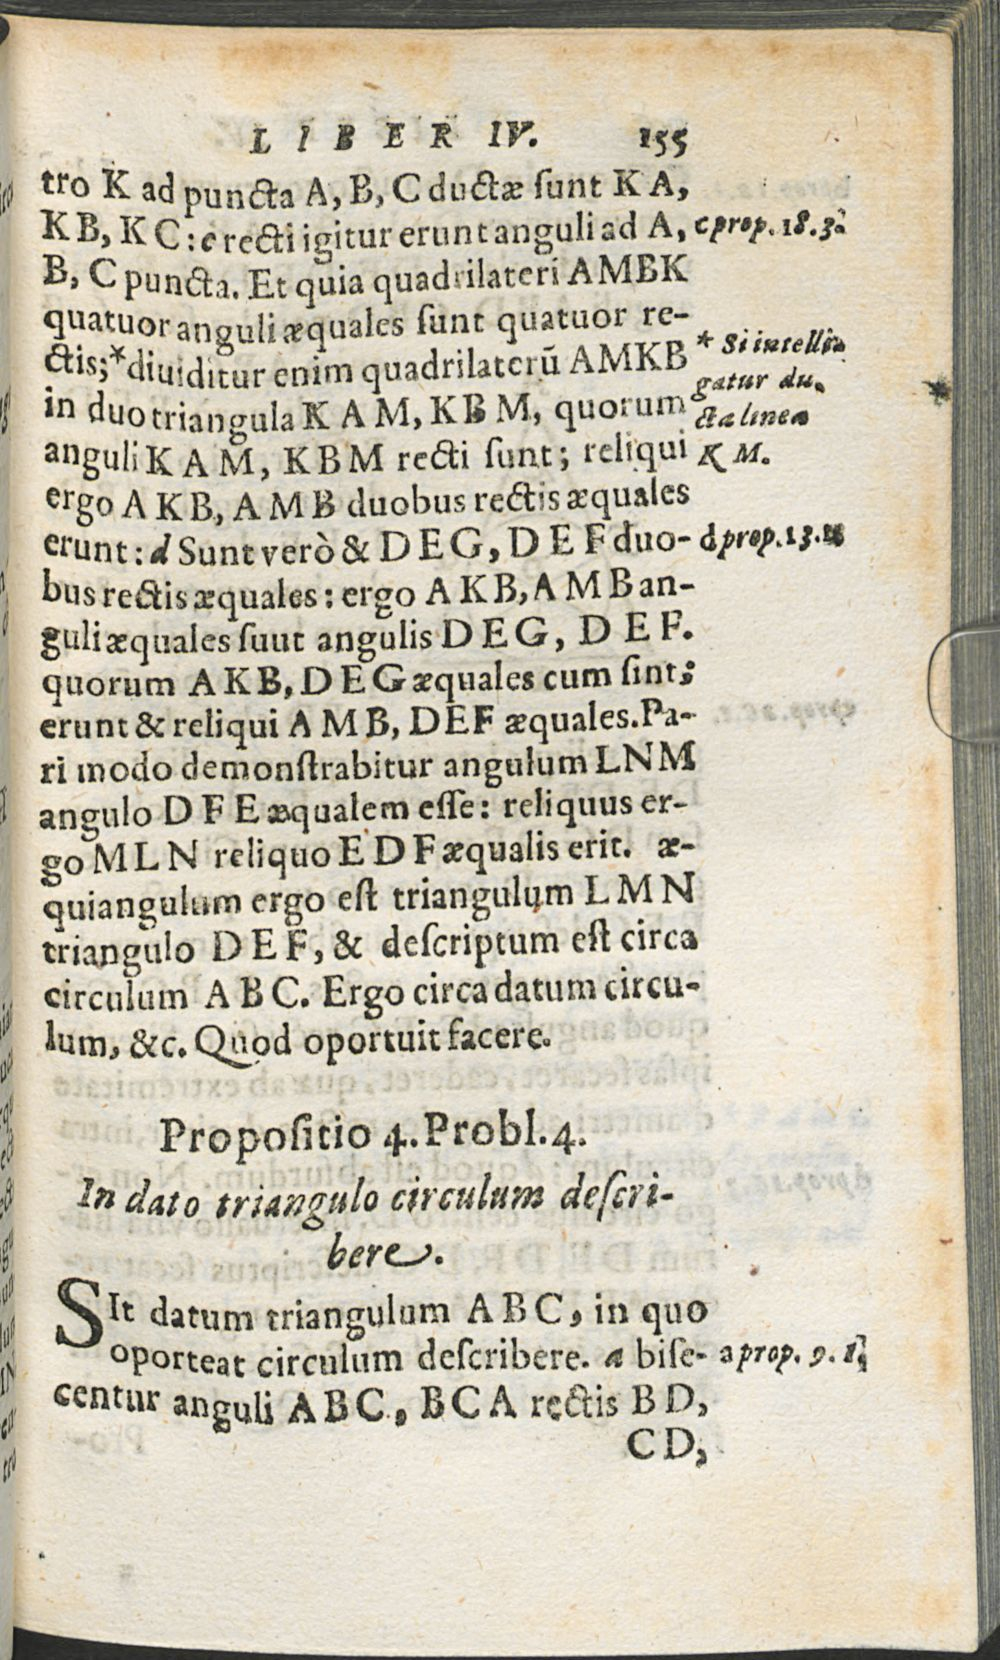 LIBER IV. 155
tro K ad puncta A, B, C ductæ ſunt K A,
K B, K C : c recti igitur erunt anguli ad A, c prop. 18. 3.
B, C puncta. Et quia quadrilateri AMBK
quatuor anguli æquales ſunt quatuor re-
ctis;* diuiditur enim quadrilaterū AMKB * Si intelli-
gatur du-
in duo triangula K A M, K B M, quorum cta linea
anguli K A M, K B M recti ſunt; reliqui K M.
ergo A K B, A M B duobus rectis æquales
erunt : d Sunt verò & D E G, D E F duo- d prop. 13. 1.
bus rectis æquales : ergo A K B, A M B an-
guli æquales ſuut angulis D E G, D E F.
quorum A K B, D E G æquales cum ſint;
erunt & reliqui A M B, DEF æquales. Pa-
ri modo demonſtrabitur angulum LNM
angulo D F E æqualem eſſe : reliquus er-
go M L N reliquo E D F æqualis erit. æ-
quiangulum ergo eſt triangulum L M N
triangulo D E F, & deſcriptum eſt circa
circulum A B C. Ergo circa datum circu-
lum, &c. Quod oportuit facere.
Propoſitio 4. Probl. 4.
In dato triangulo circulum deſcri-
bere.
SIt datum triangulum A B C, in quo
oporteat circulum deſcribere. a biſe- a prop. 9. 1.
centur anguli A B C, B C A rectis B D,
C D,